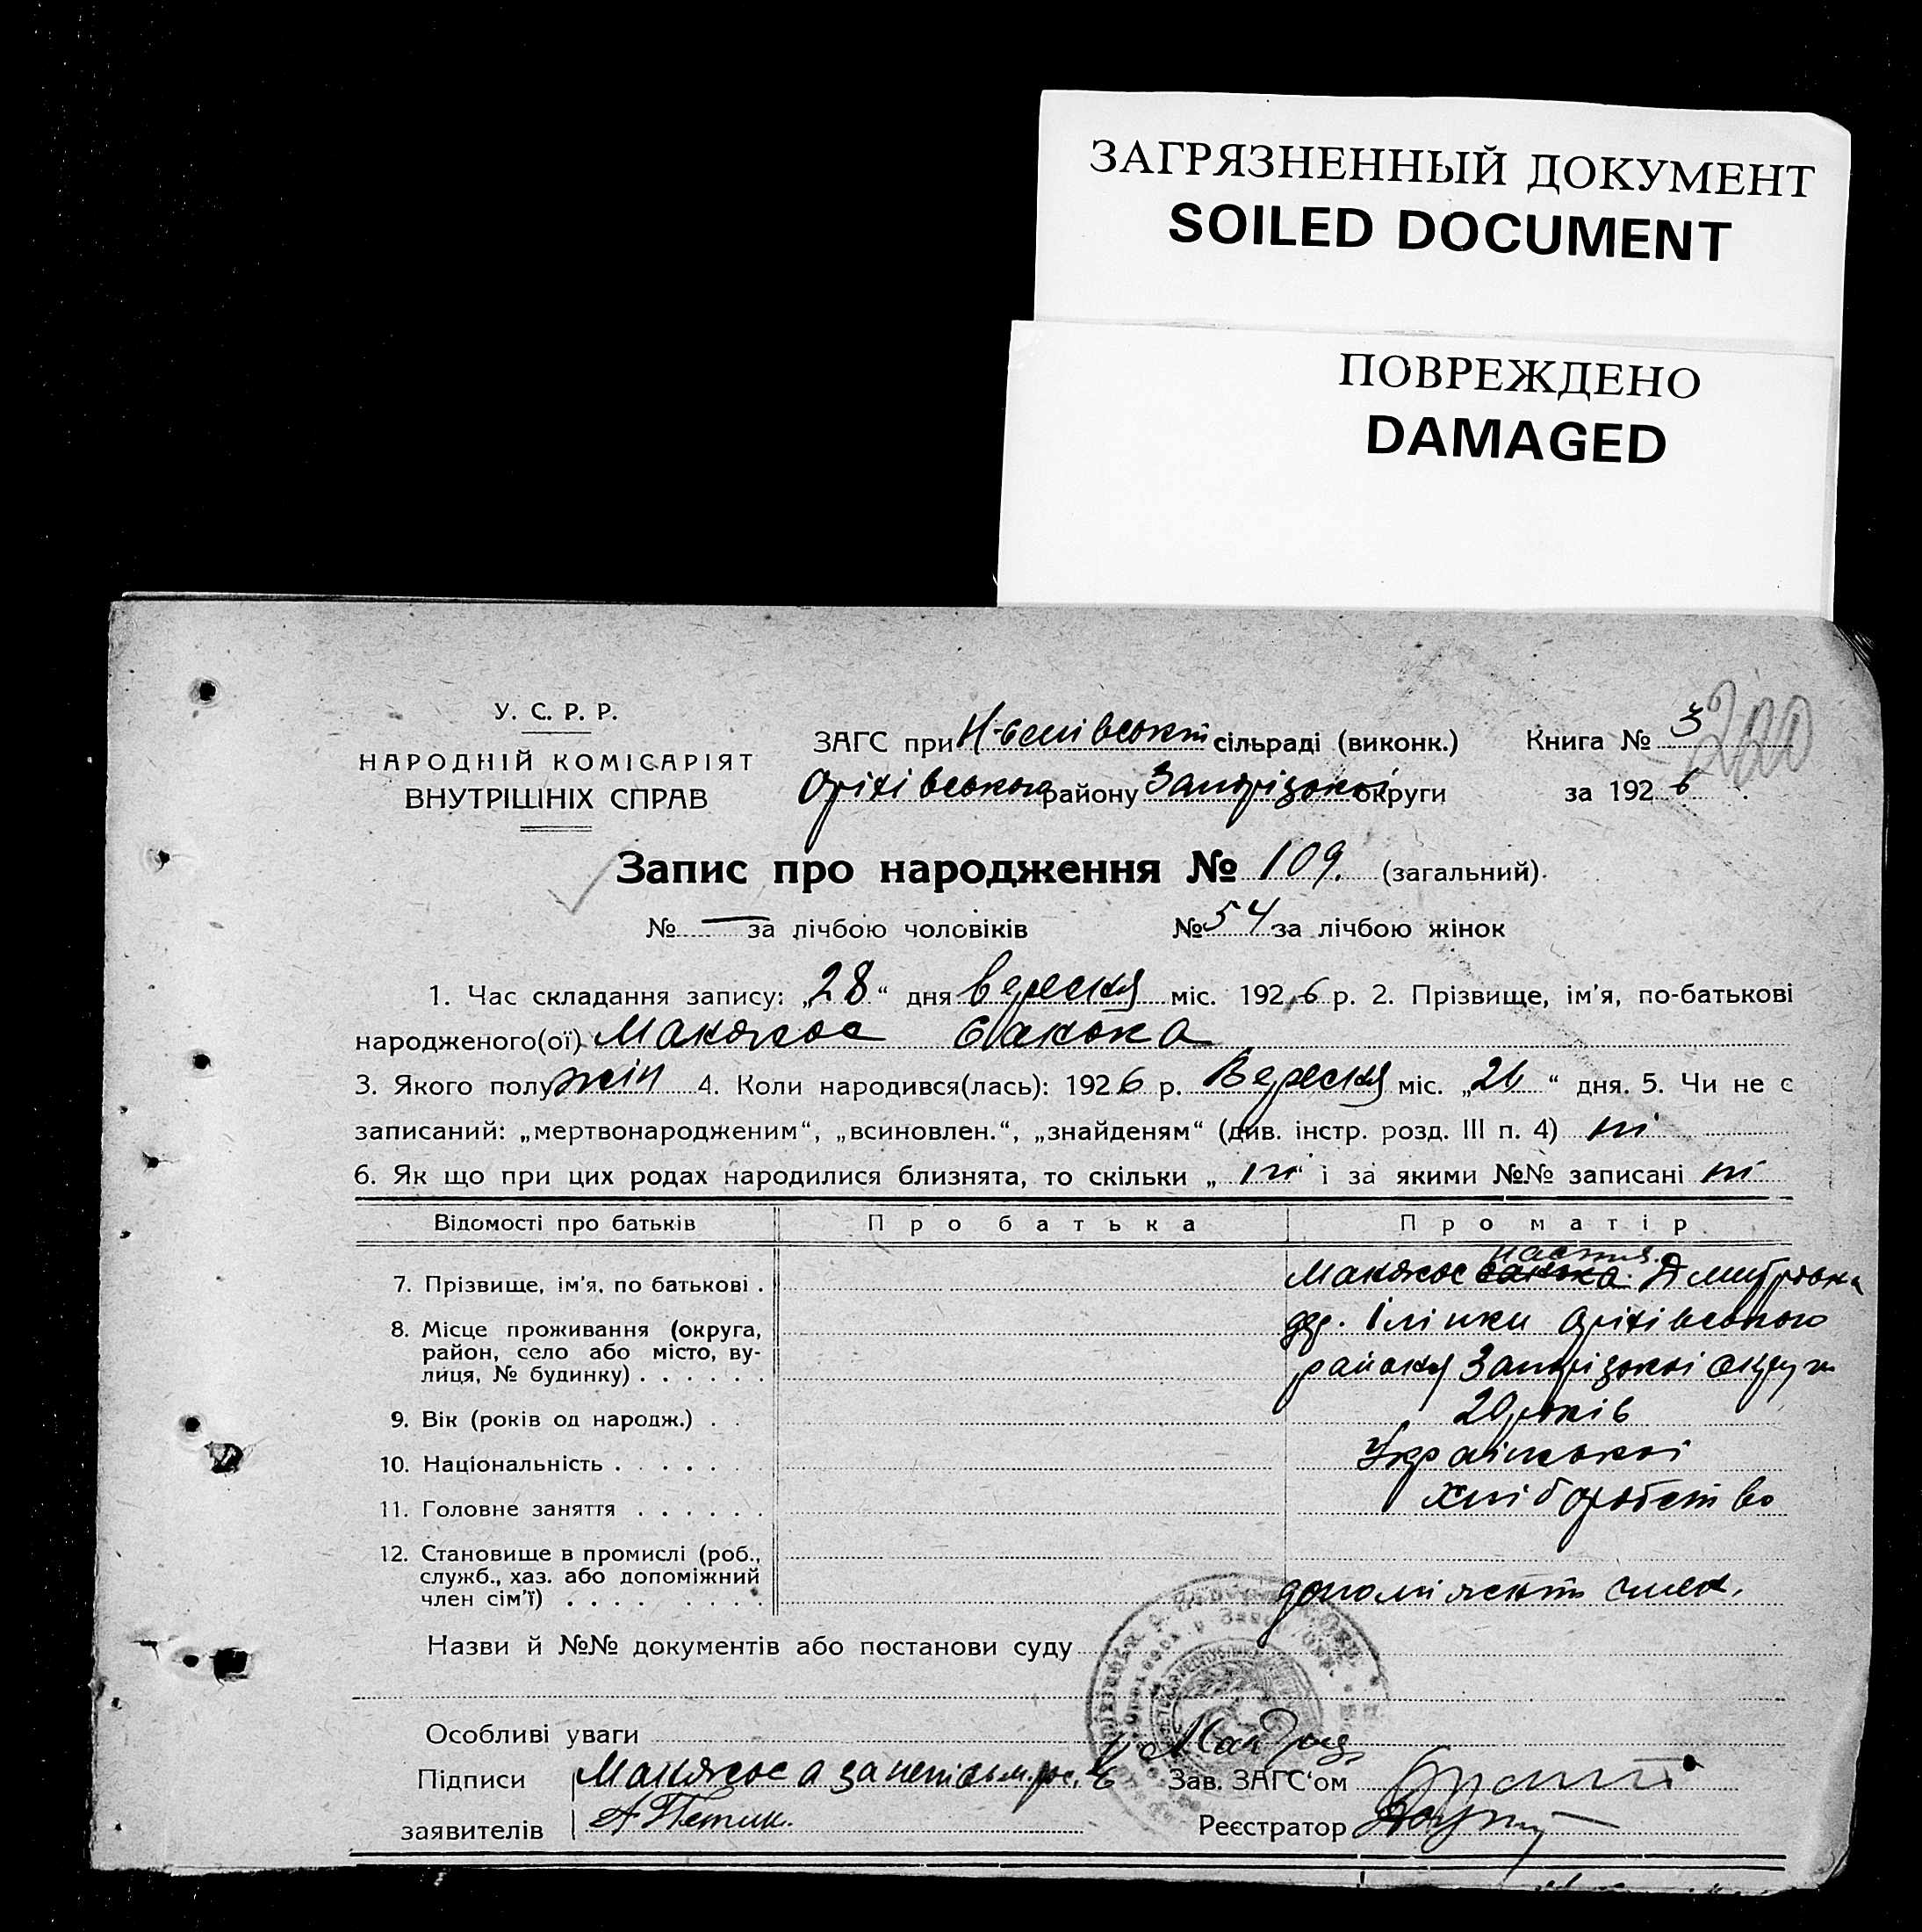 ЗАГРЯЗНЕННЫЙ ДОКУМЕНТ
SOILED DOCUMENT
ПОВРЕЖДЕНО
DAMAGED
У. С. Р. Р.
НАРОДНІЙ КОМІСАРІЯТ
ВНУТРІШНІХ СПРАВ
200
ЗАГС при сільраді (виконк.) Книга № 3
Оріхівського району Запорізької округи за 1926
Запис про народження № 109. (загальний).
№ — за лічбою чоловіків №54 за лічбою жінок
1. Час складання запису: „28“ дня вересня міс. 1926 р. 2. Прізвище, ім’я, по-батькові
народженого(ої)
3. Якого полу жін 4. Коли народився(лась): 1926 р. Вересня міс. „26“ дня. 5. Чи не є
записаний: „мертвонародженим“, „всиновлен.“, „знайденям“ (див. інстр. розд. III п. 4) ні
6. Як що при цих родах народилися близнята, то скільки „ні“ і за якими №№ записані ні
Відомості про батьків Про батька Про матір
7. Прізвище, ім’я, по батькові . Настя Дмитровна
8. Місце проживання (округа, район, село або місто, ву-лиця, № будинку) . . . . . . Оріхівського
района Запорізької округи
9. Вік (років од народж.) . . 20 років
10. Національність . . . . . . Української
11. Головне заняття . . . . . . хліборобство
12. Становище в промислі (роб.,
служб., хаз. або допоміжний
член сім’ї) . . . . . . . . допоміжний член.
Назви й №№ документів або постанови суду
Особливі уваги
Підписи Зав. ЗАГС‘ом
заявителів Реєстратор